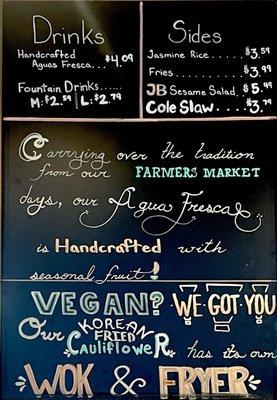 Drinks
Handcrafted
Aguas Fresca.... $4.09
Fountain Drinks.....
M: $2.59 L: $2.79
Sides
Jasmine Rice..... $3.59
Fries........... $3.99
JB Sesame Salad.. $5.49
Cole Slaw..... $3.79
Carrying over the tradition
from our FARMERS MARKET
days, our Agua Frescas
is Handcrafted with
seasonal fruit!
VEGAN? WE GOT YOU!
Our KOREAN
FRIED
CaulifloweR has its own
WOK & FRYER